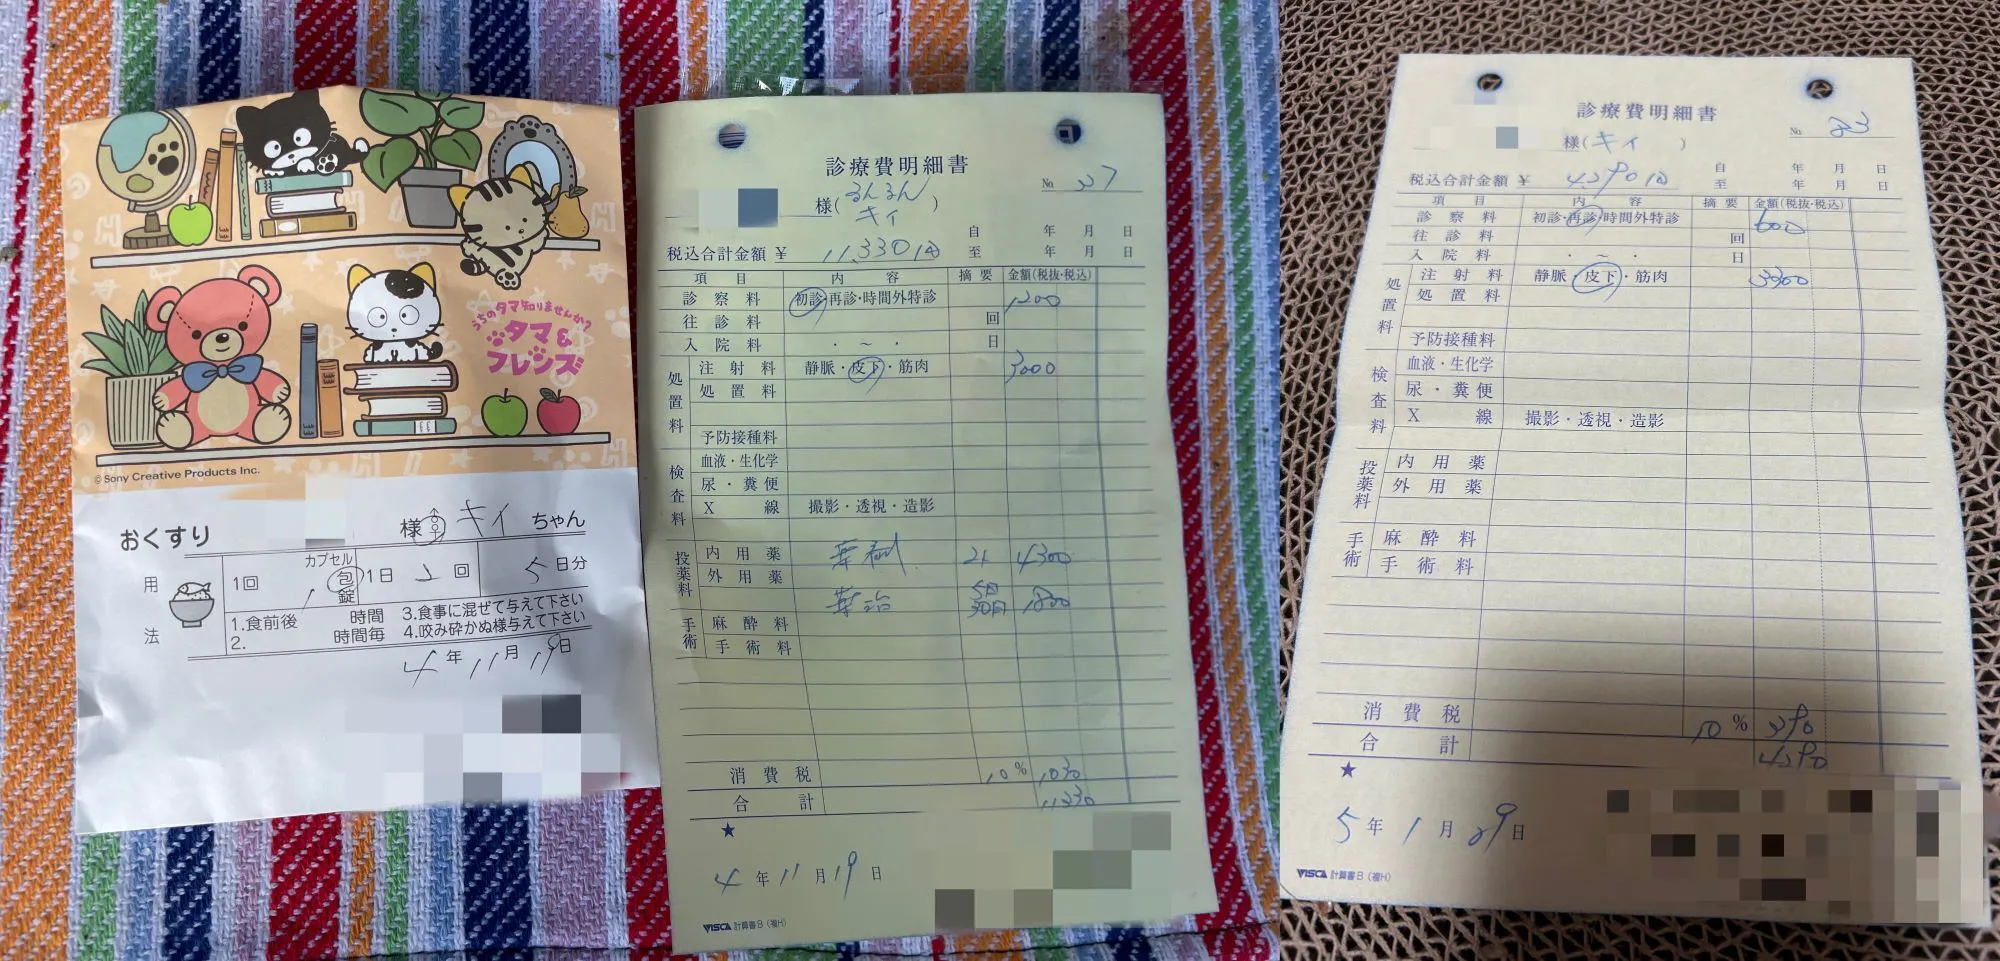 うちのタマ知りませんか?
タマ&
フレンズ
© Sony Creative Products Inc.
おくすり 様 キィ ちゃん
用法
1回 1 カプセル 包 錠 1日 2 回 5 日分
1.食前後 時間 3.食事に混ぜて与えて下さい
2. 時間毎 4.咬み砕かぬ様与えて下さい
4 年 11 月 19 日
診療費明細書
No. 27
様( るんるん キィ )
自 年 月 日
税込合計金額 ¥ 11,330 至 年 月 日
項目 内容 摘要 金額(税抜・税込)
診察料 初診・再診・時間外特診 1200
往診料 回
入院料 ・ ~ ・ 日
処置料 注射料 静脈・皮下・筋肉 3000
処置料
予防接種料
検査料 血液・生化学
尿・糞便
X線 撮影・透視・造影
投薬料 内用薬 4300
外用薬
5日 30日 1800
手術 麻酔料
手術料
消費税 10% 1030
合計 11330
★
4 年 11 月 19 日
VISCA 計算書B(複H)
診療費明細書
No. 23
様( キィ )
自 年 月 日
税込合計金額 ¥ 4,290 至 年 月 日
項目 内容 摘要 金額(税抜・税込)
診察料 初診・再診・時間外特診 600
往診料 回
入院料 ・ ~ ・ 日
処置料 注射料 静脈・皮下・筋肉 3300
処置料
予防接種料
検査料 血液・生化学
尿・糞便
X線 撮影・透視・造影
投薬料 内用薬
外用薬
手術 麻酔料
手術料
消費税 10% 390
合計 4290
★
5 年 1 月 29 日
VISCA 計算書B(複H)